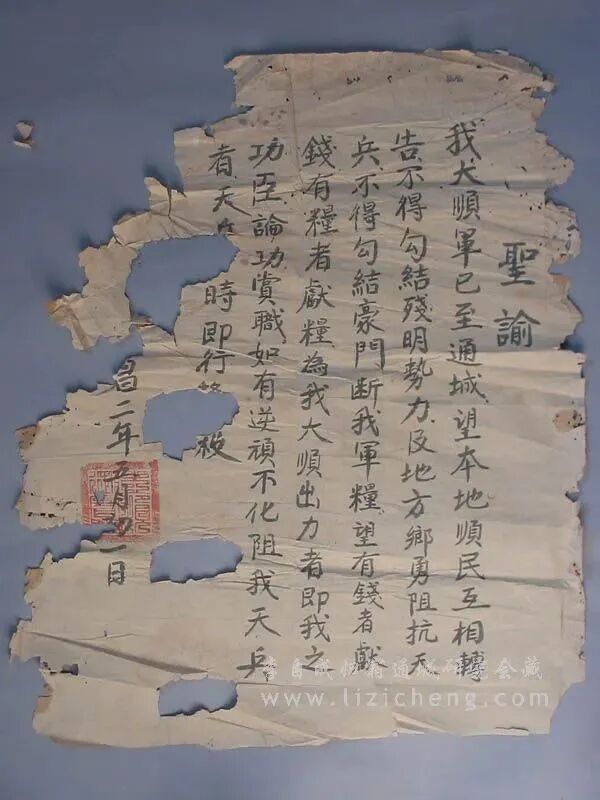 聖諭
我大順軍已至通城望本地順民互相轉
告不得勾結殘明勢力及地方鄉勇阻抗天
兵不得勾結豪門断我軍糧望有錢者獻
錢有糧者獻糧為我大順出力者即我之
功臣論功賞職如有逆頑不化阻我天兵
者天 時即行 殺
昌二年五月初一日
李自成 通城研究会藏
www.lizicheng.com